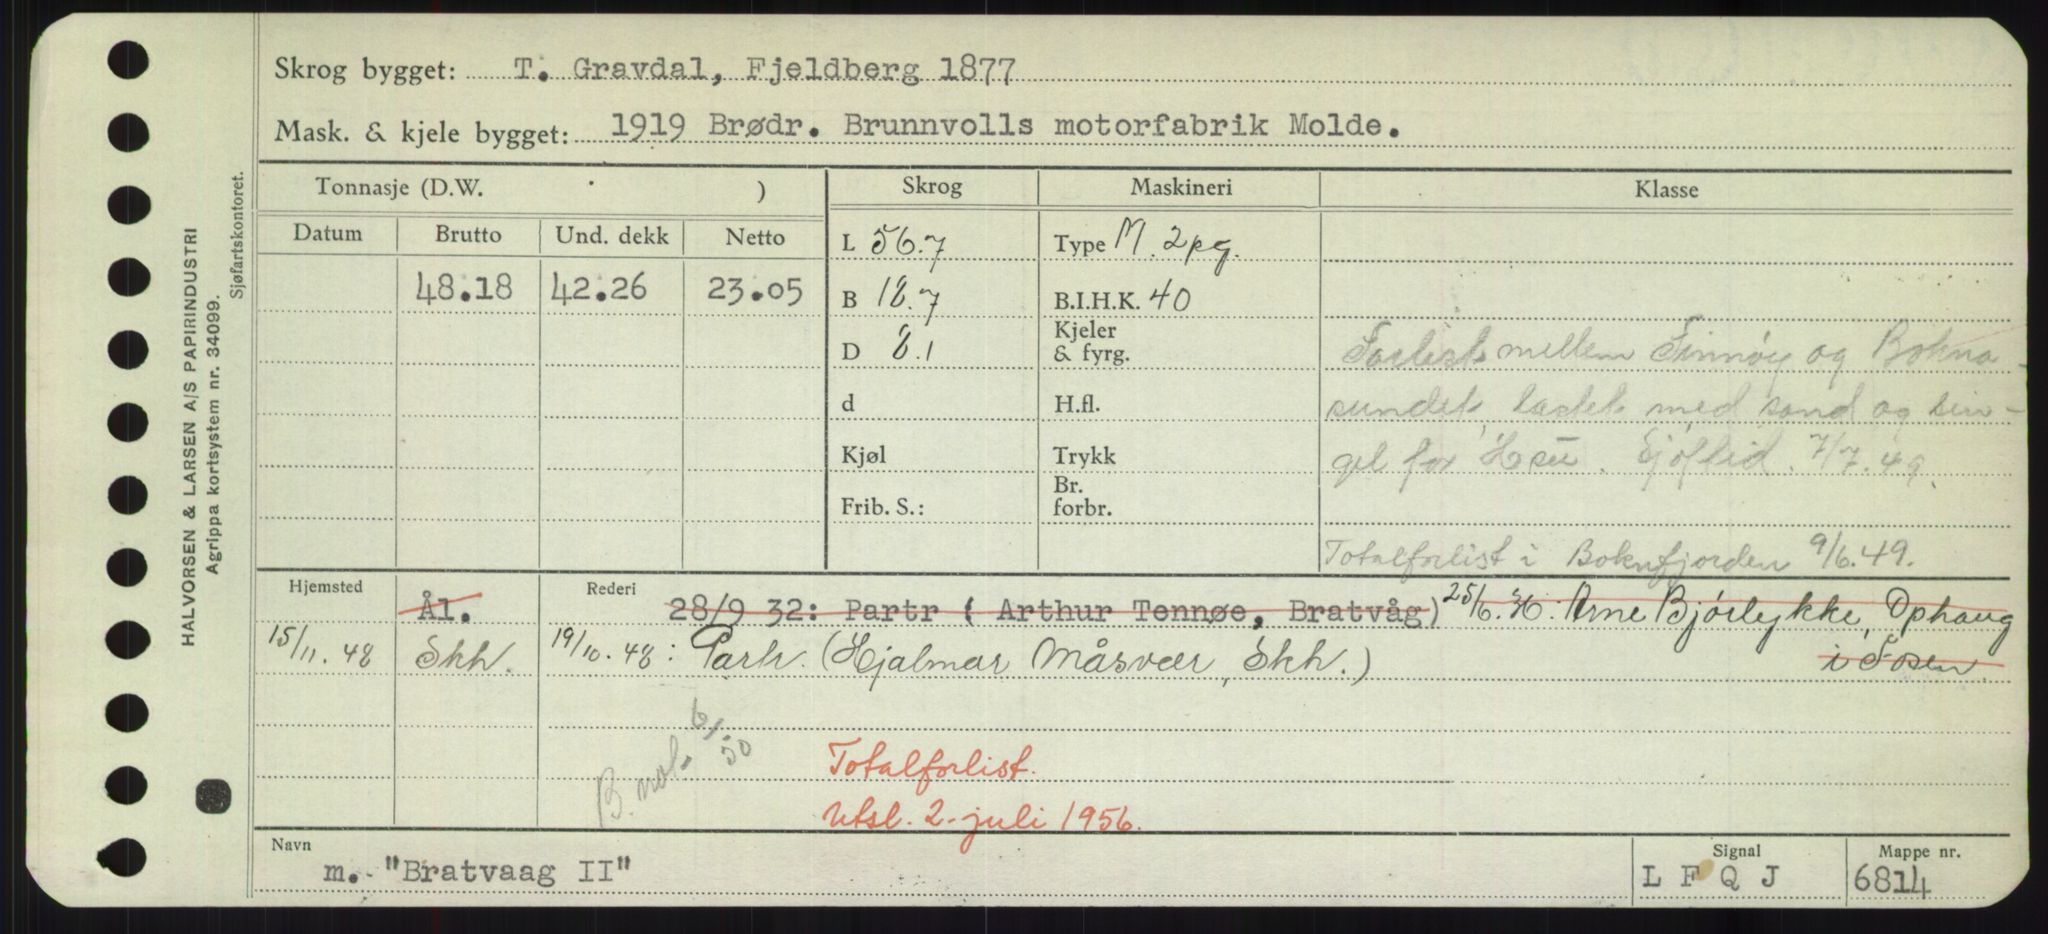 Skrog bygget: T. Gravdal, Fjeldberg 1877
Mask. & kjele bygget: 1919 Brødr. Brunnvolls motorfabrik Molde.
HALVORSEN & LARSEN A/S PAPIRINDUSTRI
Agrippa kortsystem nr. 34099.
Sjøfartskontoret.
Tonnasje (D.W. )
Skrog
Maskineri
Klasse
Datum Brutto Und. dekk Netto
48.18 42.26 23.05
L 56.7
B 18.7
D 8.1
d
Kjøl
Frib. S.:
Type M. 2pg.
B.I.H.K. 40
Kjeler
& fyrg.
H.fl.
Trykk
Br.
forbr.
Forlist mellem Finnøy og Bokna-
sundet, lastet med sand og sin-
gel for . Sjøftid. 7/7.49.
Totalforlist i Boknfjorden 9/6.49.
Hjemsted Rederi
Ål. 28/9 32: Partr ( Arthur Tennøe, Bratvåg) 25/6.36: Arne Bjørlykke, Ophaug
i Fosen
15/11.48 Skh. 19/10.48: Partr. (Hjalmar Måsvær, Skh.)
B. not. 6/50
Totalforlist.
Utsl. 2. juli 1956.
Navn Signal Mappe nr.
m. "Bratvaag II" L F Q J 6814